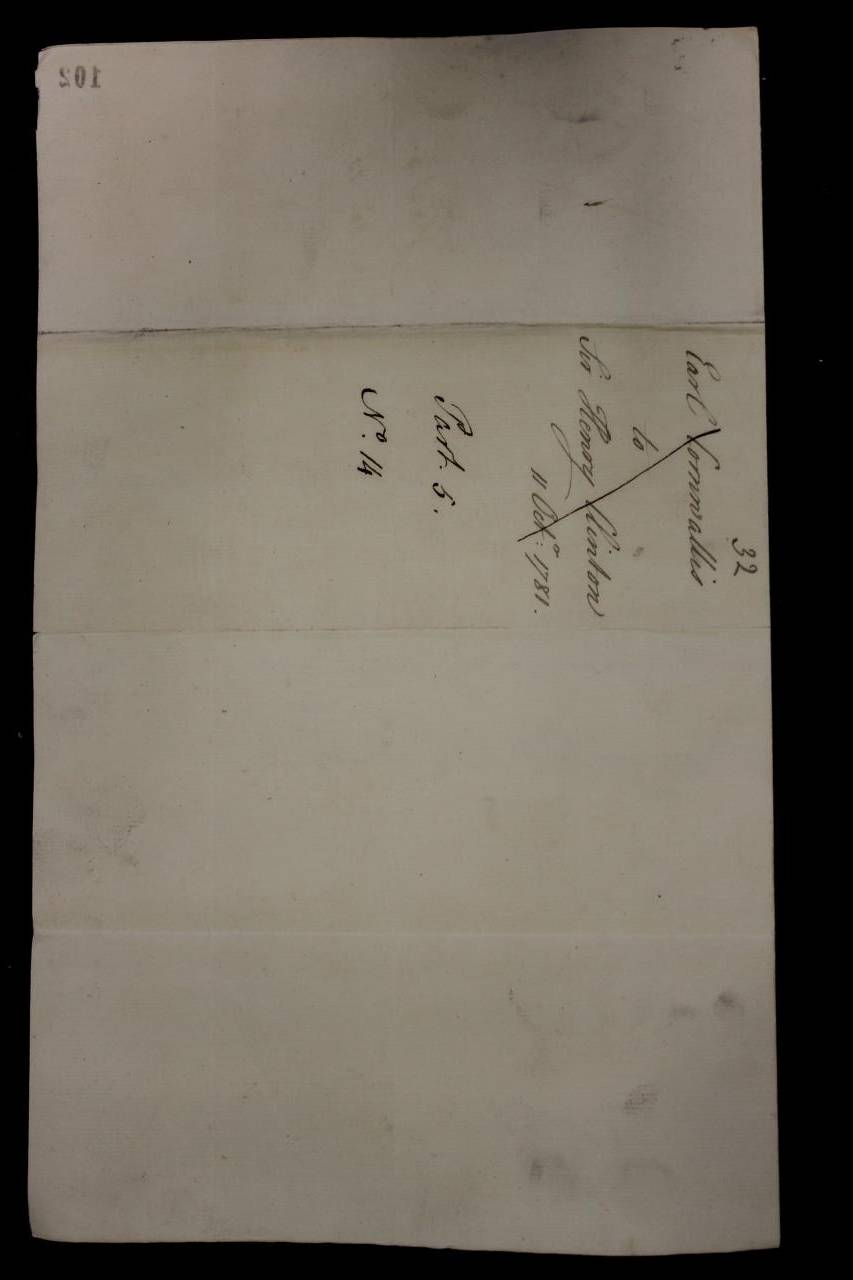 32
Earl Cornwallis
to
Sir Henry Clinton
11 Octr: 1781.
Part. 5.
No. 14
102